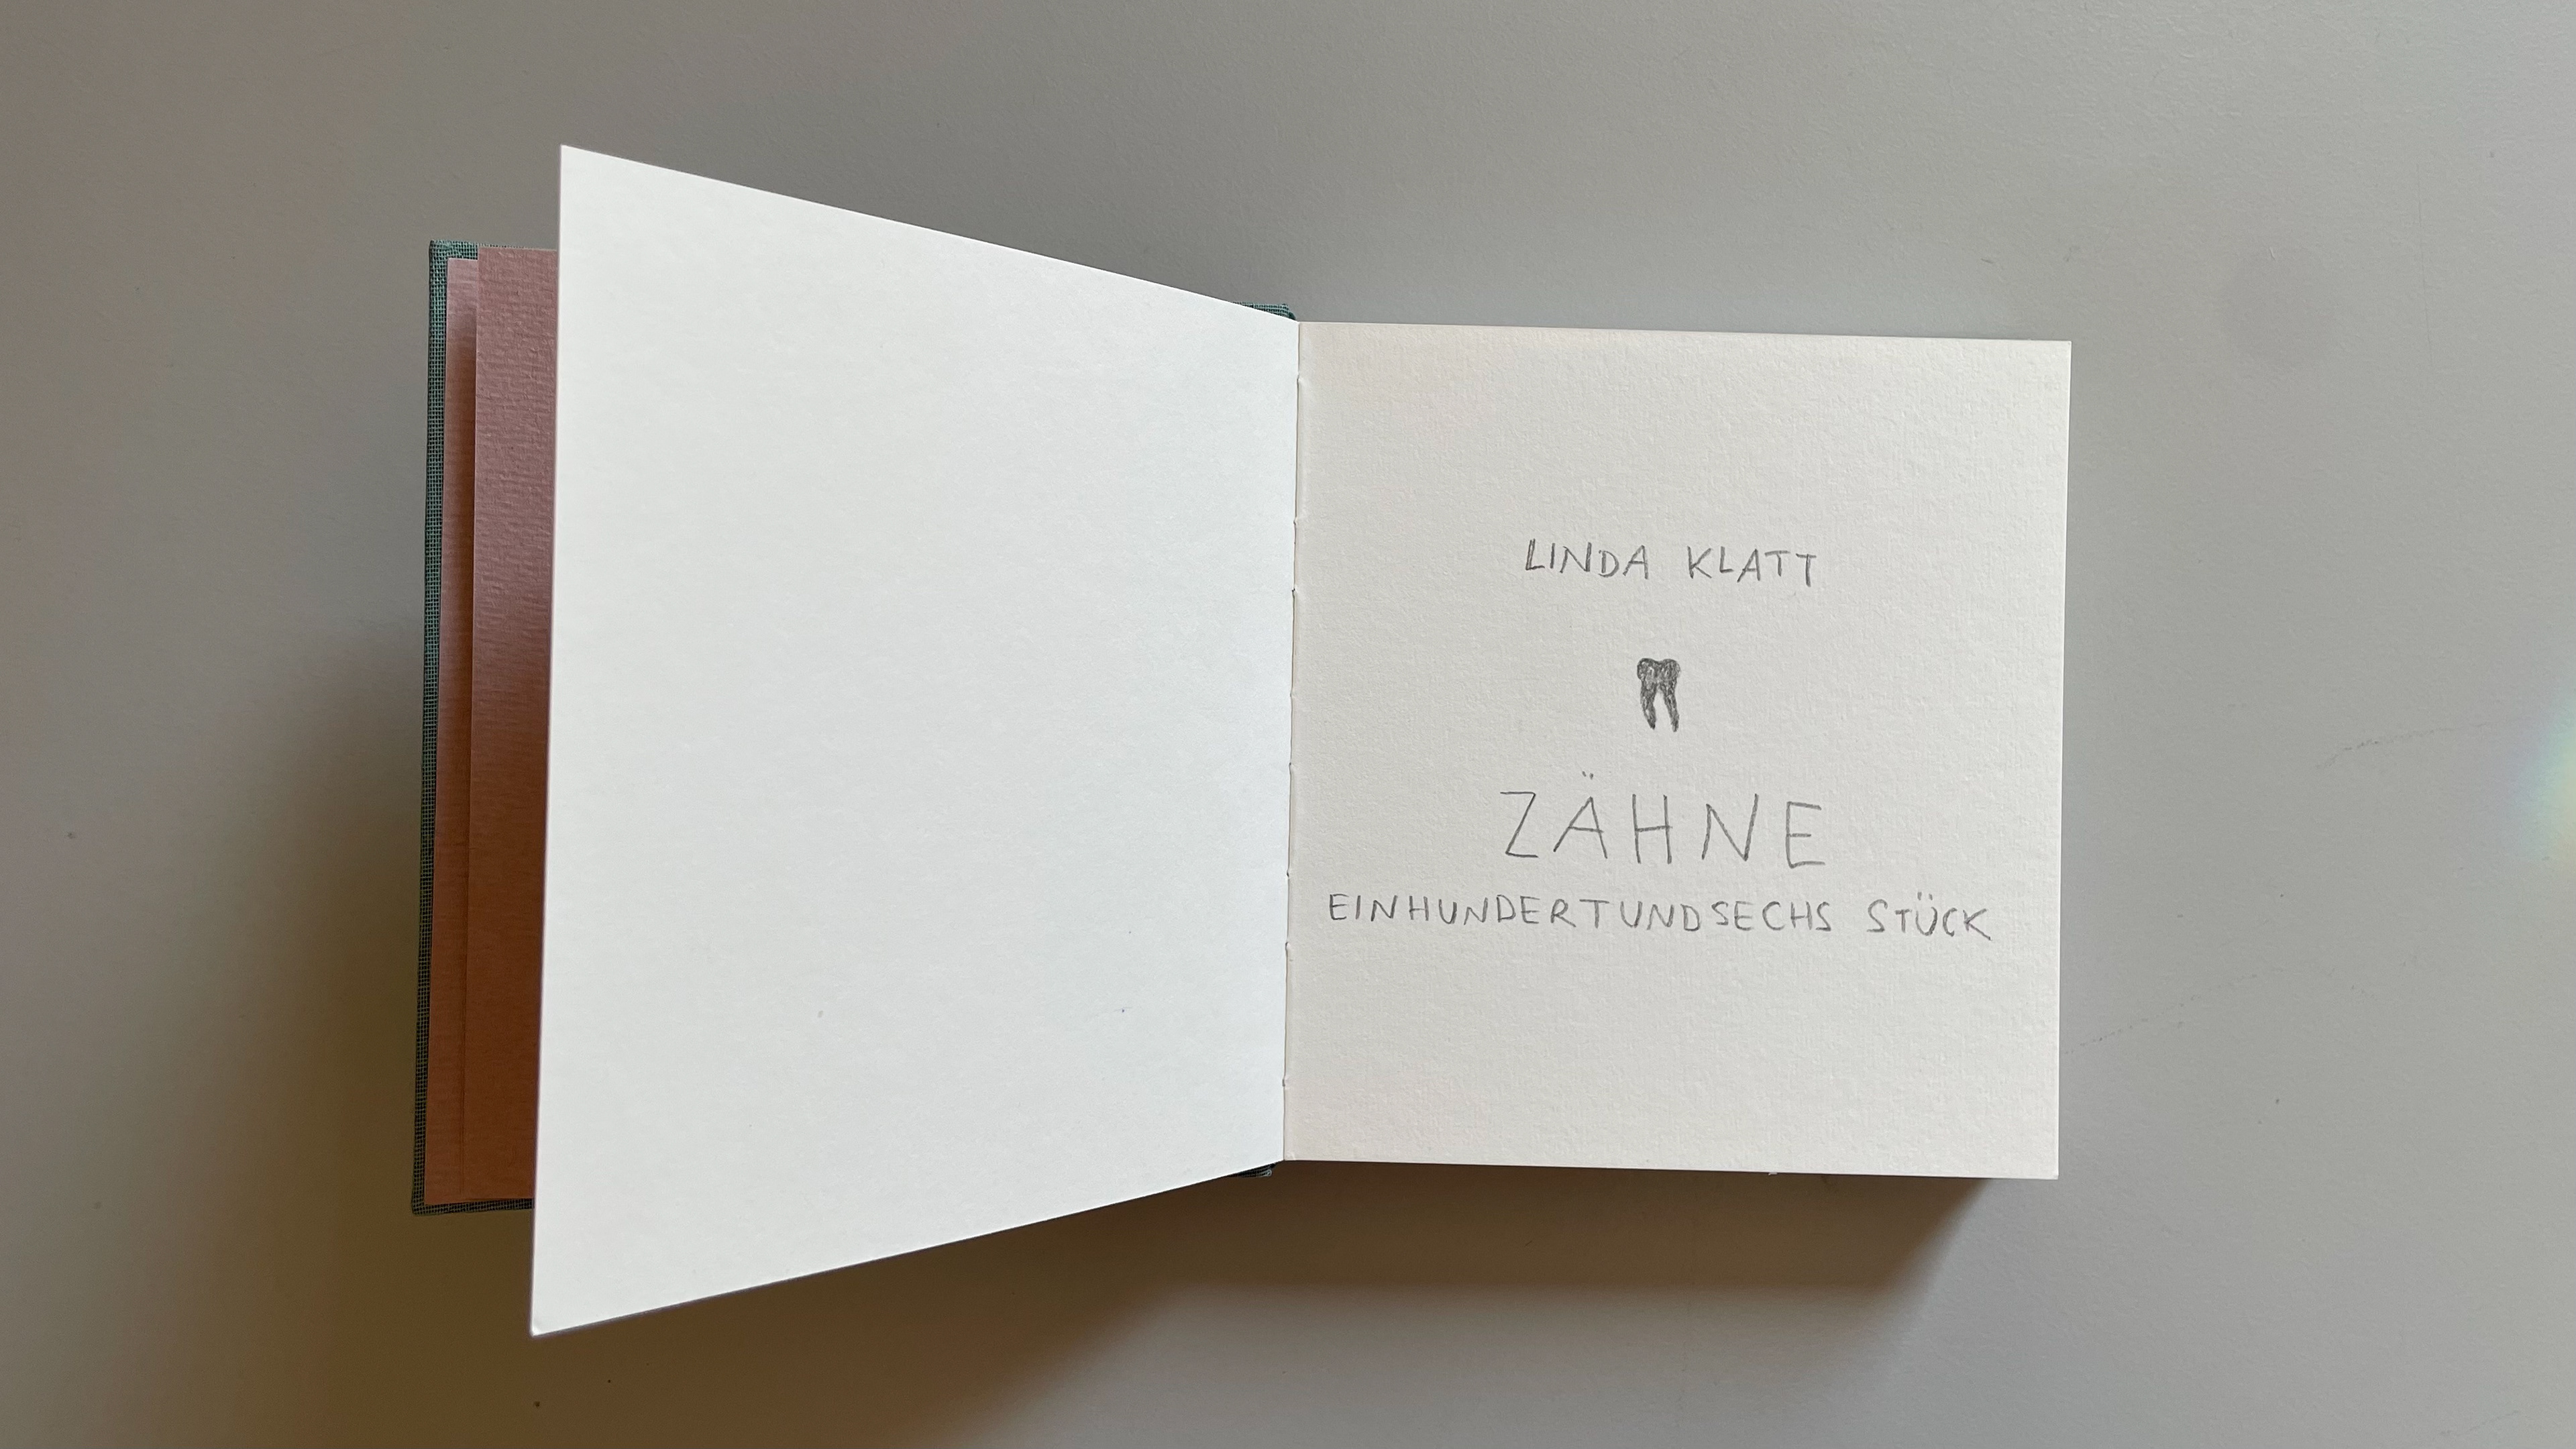 LINDA KLATT
ZÄHNE
EINHUNDERTUNDSECHS STÜCK